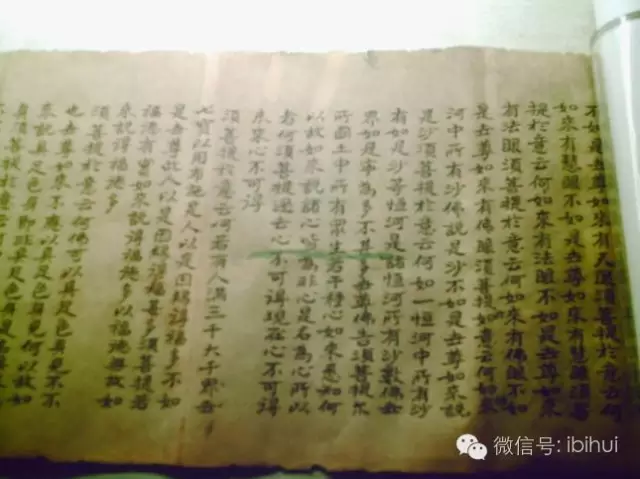 不如是世尊如來有天眼須菩提於意云何
如來有慧眼不如是世尊如來有慧眼須菩
提於意云何如來有法眼不如是世尊如來
有法眼須菩提於意云何如來有佛眼不如
是世尊如來有佛眼須菩提於意云何
河中所有沙佛說是沙不如是世尊如來說
是沙須菩提於意云何如一恒河中所有沙
有如是沙等恒河是諸恒河所有沙數佛世
界如是寧為多不甚多世尊佛告須菩提尒
所國土中所有眾生若干種心如來悉知何
以故如來說諸心皆為非心是名為心所以
者何須菩提過去心不可得現在心不可得
未來心不可得
須菩提於意云何若有人滿三千大千界世
七寶以用布施是人以是因緣得福多不如
是世尊此人以是因緣得福甚多須菩提若
福德有實如來說得福德多以福德無故如
來說得福德多
須菩提於意云何佛可以具足色身見不不
也世尊如來不應以具足色身見何以故如
來說具足色身即非具足色身是名具足
身須菩提於意云何
微信号: ibihui